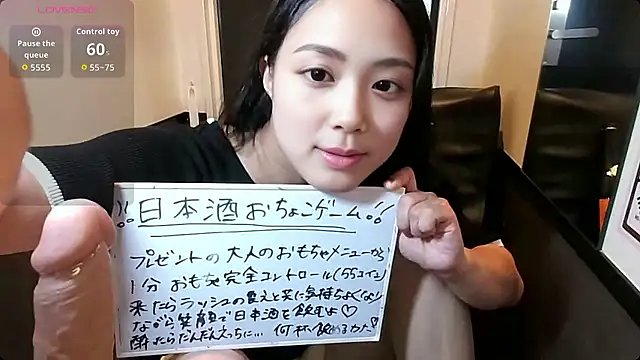 LOVENSE
Pause the
queue
5555
Control toy
60s
55~75
!!日本酒おちょこゲーム!!
プレゼントの大人のおもちゃメニューから
1分おもちゃ完全コントロール(55コイン)
来たらラッシュの震えと共に気持ちよくなり
ながら笑顔で日本酒を飲むよ♡
酔ったらだんだんえっちに…何杯飲めるかな♡